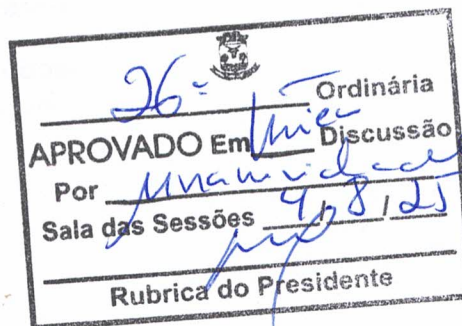 26ª Ordinária
APROVADO Em Única Discussão
Por Unanimidade
Sala das Sessões 4/8/25
Rubrica do Presidente